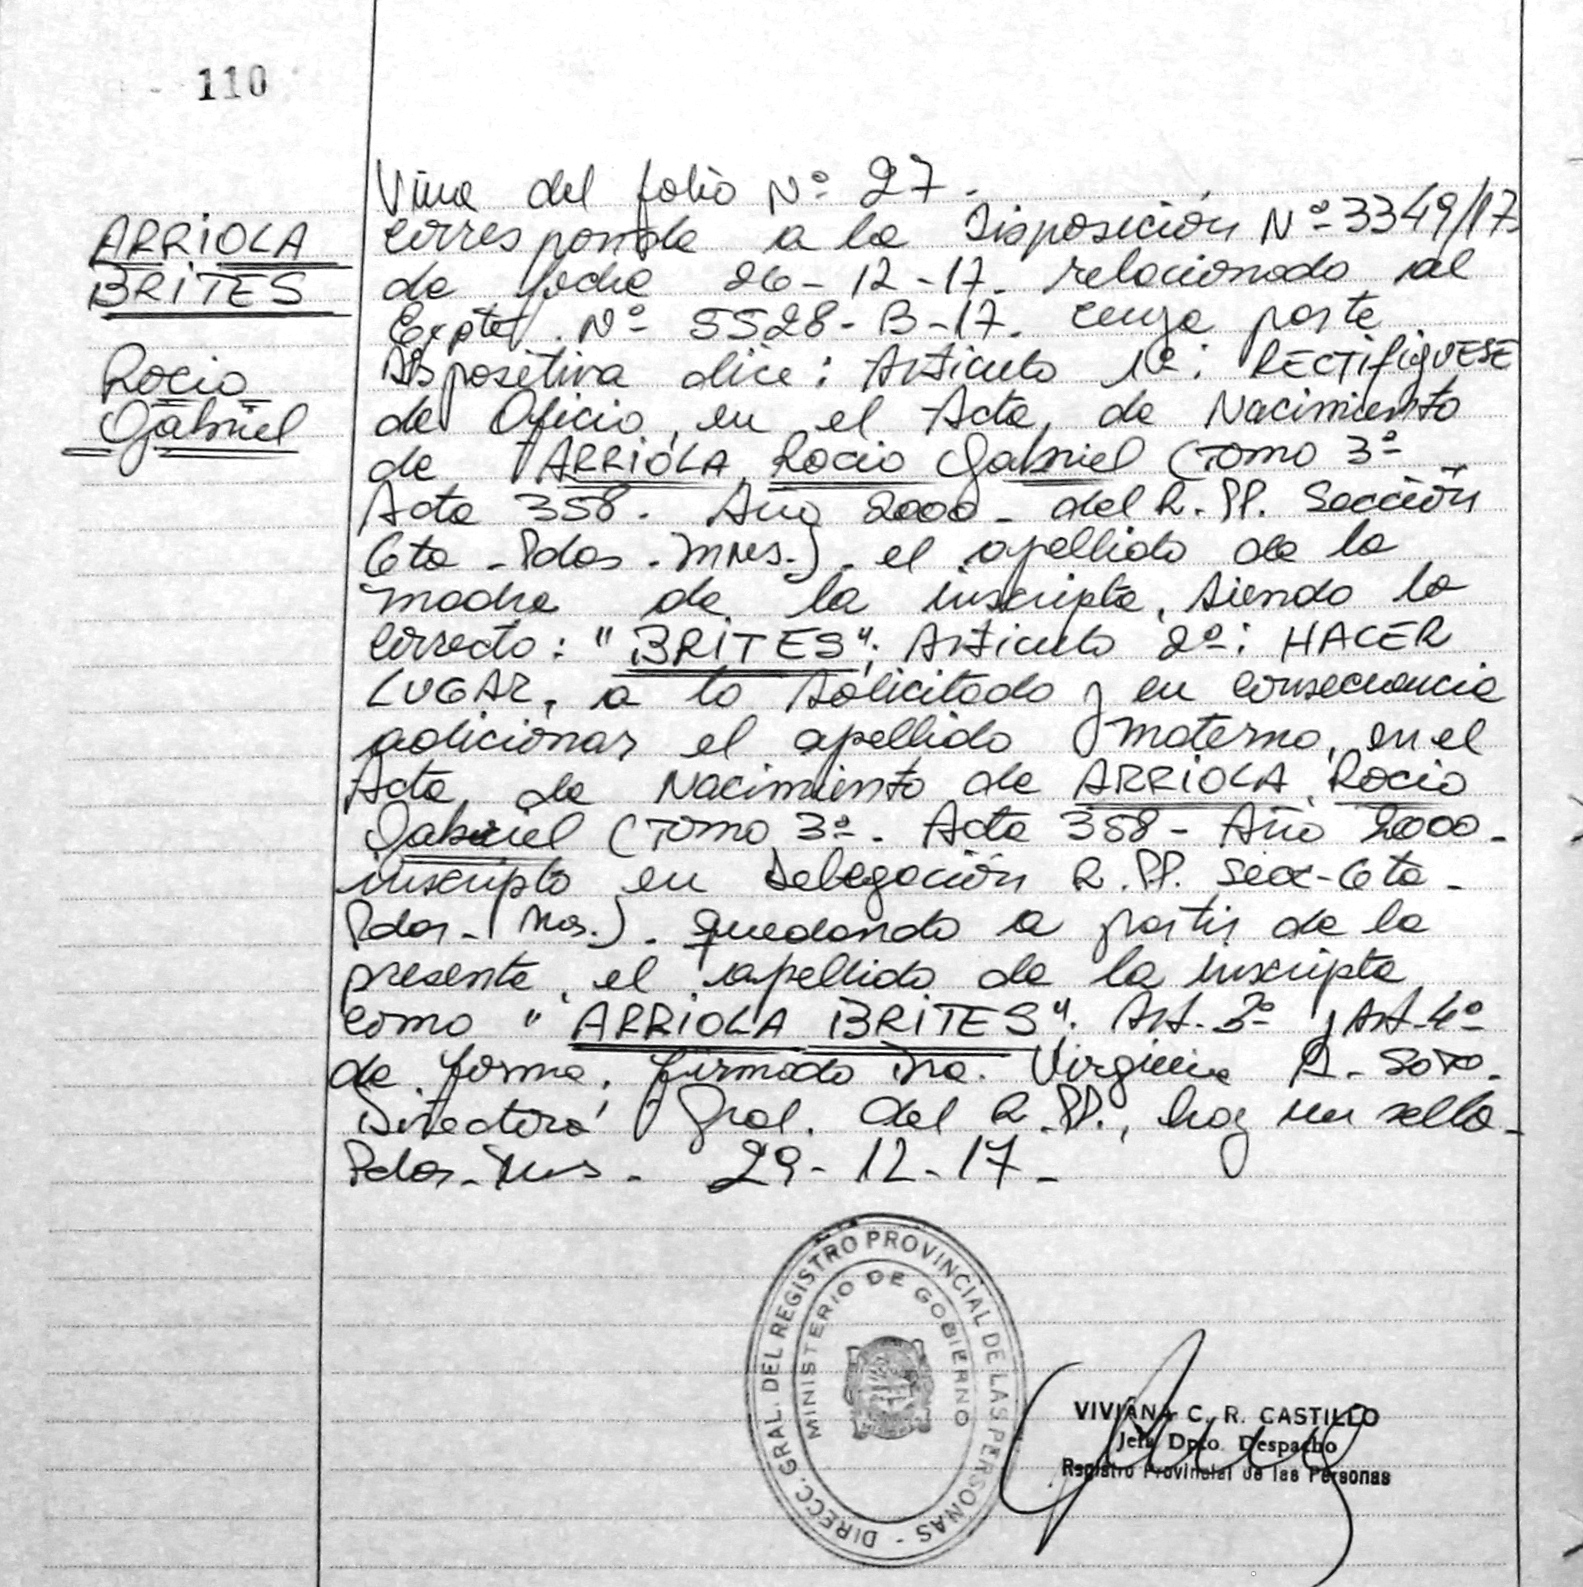 110
ARRIOLA
BRITES
Rocio
Gabriel
Viene del folio Nº 27.
Corresponde a la Disposición Nº 3349/17
de fecha 26-12-17. relacionado al
Expte. Nº 5528-B-17. cuya parte
Dispositiva dice: Artículo 1º: RECTIFIQUESE
de Oficio, en el Acta, de Nacimiento
de ARRIOLA Rocio Gabriel (Tomo 3º
Acta 358. Año 2000- del R.PP. Sección
6ta - Pdas. Mnes.). el apellido de la
madre de la inscripta, siendo lo
correcto: "BRITES"; Artículo 2º: HACER
LUGAR, a lo solicitado y en consecuencia
adicionar el apellido materno, en el
Acta, de Nacimiento de ARRIOLA, Rocio
Gabriel (Tomo 3º. Acta 358- Año 2000-
inscripto en Delegación R.PP. Secc-6ta-
Pdas- Mns.). quedando a partir de la
presente, el apellido de la inscripta
como "ARRIOLA BRITES". Art. 3º y Art. 4º
de forma. firmado Dra. Virginia A. Soto.
Directora Gral. del R.PP., hay un sello.
Pdas-Mns. 29-12-17-
DIRECC. GRAL. DEL REGISTRO PROVINCIAL DE LAS PERSONAS -
MINISTERIO DE GOBIERNO
VIVIANA C. R. CASTILLO
Jefa Dpto. Despacho
Registro Provincial de las Personas